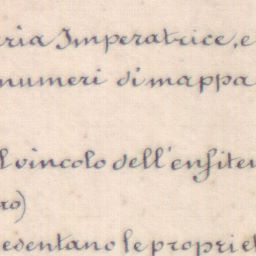 ria Imperatrice, e
numeri di mappa
l vincolo dell'enfiteu
ro)
edentano le propriet